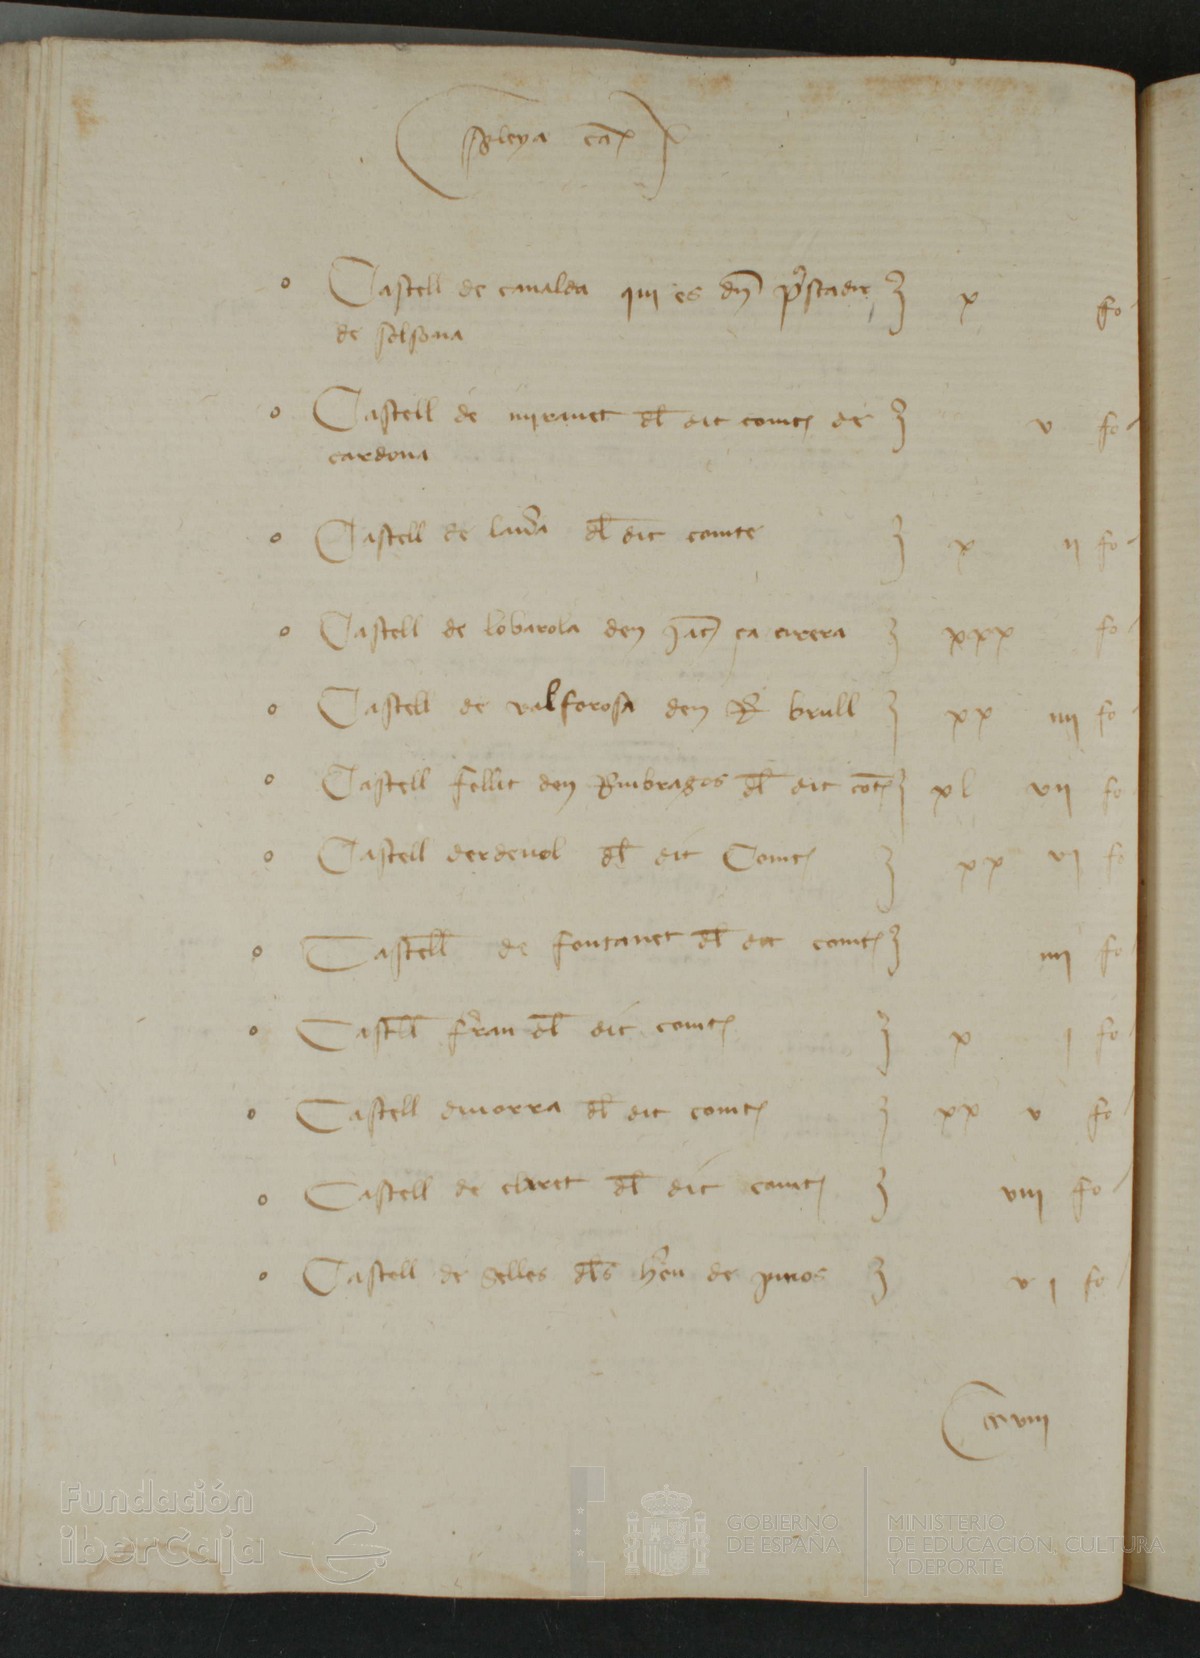 Castell de canalda qui es dn̄ p̄stadie ℥ x fo
de solsona
Castell de miravet dl̄ dit comte de ℥ v fo
cardona
Castell de laura dl̄ dit comte ℥ x ii fo
Castell de lobarola den ça cirera ℥ xxx fo
Castell de valforosa den R brull ℥ xx iiii fo
Castell follit den Riubragos dl̄ dit cōt ℥ xl vii fo
Castell derdenol dl̄ dit Comte ℥ xx vi fo
Castell de fontanet dl̄ dit comte ℥ iiii fo
Castell fran dl̄ dit comte ℥ x i fo
Castell dmorra dl̄ dit comte ℥ xx v fo
Castell de claret dl̄ dit comte ℥ viii fo
Castell de selles dl̄s heu de pinos ℥ vi fo
ccviii
Fundación
iberCaja
GOBIERNO
DE ESPAÑA
MINISTERIO
DE EDUCACIÓN, CULTURA
Y DEPORTE